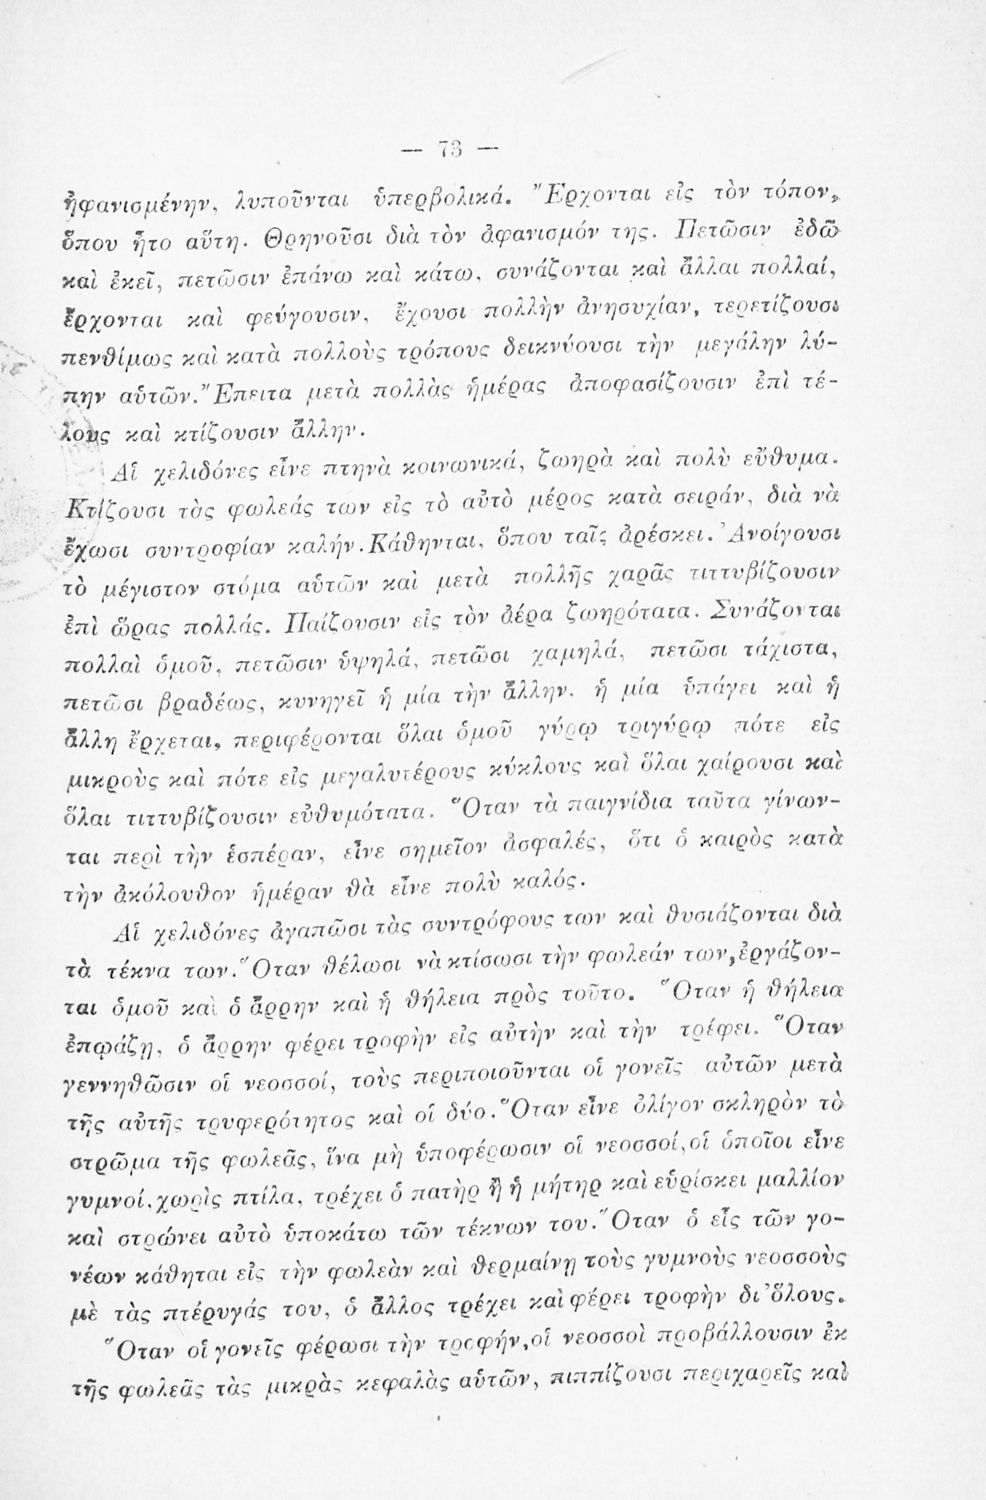 — 73 —
ἠφανισμένην, λυποῦνται ὑπερβολικά. Ἔρχονται εἰς τὸν τόπον,
ὅπου ἦτο αὕτη. Θρηνοῦσι διὰ τὸν ἀφανισμόν της. Πετῶσιν ἐδῶ
καὶ ἐκεῖ, πετῶσιν ἐπάνω καὶ κάτω, συνάζονται καὶ ἄλλαι πολλαί,
ἔρχονται καὶ φεύγουσιν, ἔχουσι πολλὴν ἀνησυχίαν, τερετίζουσι
πενθίμως καὶ κατὰ πολλοὺς τρόπους δεικνύουσι τὴν μεγάλην λύ-
πην αὑτῶν. Ἔπειτα μετὰ πολλὰς ἡμέρας ἀποφασίζουσιν ἐπὶ τέ-
λους καὶ κτίζουσιν ἄλλην.
Αἱ χελιδόνες εἶνε πτηνὰ κοινωνικά, ζωηρὰ καὶ πολὺ εὔθυμα.
Κτίζουσι τὰς φωλεάς των εἰς τὸ αὐτὸ μέρος κατὰ σειράν, διὰ νὰ
ἔχωσι συντροφίαν καλήν. Κάθηνται, ὅπου ταῖς ἀρέσκει. Ἀνοίγουσι
τὸ μέγιστον στόμα αὑτῶν καὶ μετὰ πολλῆς χαρᾶς τιττυβίζουσιν
ἐπὶ ὥρας πολλάς. Παίζουσιν εἰς τὸν ἀέρα ζωηρότατα. Συνάζονται
πολλαὶ ὁμοῦ, πετῶσιν ὑψηλά, πετῶσι χαμηλά, πετῶσι τάχιστα,
πετῶσι βραδέως, κυνηγεῖ ἡ μία τὴν ἄλλην, ἡ μία ὑπάγει καὶ ἡ
ἄλλη ἔρχεται, περιφέρονται ὅλαι ὁμοῦ γύρῳ τριγύρῳ πότε εἰς
μικροὺς καὶ πότε εἰς μεγαλυτέρους κύκλους καὶ ὅλαι χαίρουσι καὶ
ὅλαι τιττυβίζουσιν εὐθυμότατα. Ὅταν τὰ παιγνίδια ταῦτα γίνων-
ται περὶ τὴν ἑσπέραν, εἶνε σημεῖον ἀσφαλές, ὅτι ὁ καιρὸς κατὰ
τὴν ἀκόλουθον ἡμέραν θὰ εἶνε πολὺ καλός.
Αἱ χελιδόνες ἀγαπῶσι τὰς συντρόφους των καὶ θυσιάζονται διὰ
τὰ τέκνα των. Ὅταν θέλωσι νὰ κτίσωσι τὴν φωλεάν των, ἐργάζον-
ται ὁμοῦ καὶ ὁ ἄρρην καὶ ἡ θήλεια πρὸς τοῦτο. Ὅταν ἡ θήλεια
ἐπῳάζῃ, ὁ ἄρρην φέρει τροφὴν εἰς αὐτὴν καὶ τὴν τρέφει. Ὅταν
γεννηθῶσιν οἱ νεοσσοί, τοὺς περιποιοῦνται οἱ γονεῖς αὐτῶν μετὰ
τῆς αὐτῆς τρυφερότητος καὶ οἱ δύο. Ὅταν εἶνε ὀλίγον σκληρὸν τὸ
στρῶμα τῆς φωλεᾶς, ἵνα μὴ ὑποφέρωσιν οἱ νεοσσοί, οἱ ὁποῖοι εἶνε
γυμνοί, χωρὶς πτίλα, τρέχει ὁ πατὴρ ἢ ἡ μήτηρ καὶ εὑρίσκει μαλλίον
καὶ στρώνει αὐτὸ ὑποκάτω τῶν τέκνων του. Ὅταν ὁ εἷς τῶν γο-
νέων κάθηται εἰς τὴν φωλεὰν καὶ θερμαίνῃ τοὺς γυμνοὺς νεοσσοὺς
μὲ τὰς πτέρυγάς του, ὁ ἄλλος τρέχει καὶ φέρει τροφὴν δι' ὅλους.
Ὅταν οἱ γονεῖς φέρωσι τὴν τροφήν, οἱ νεοσσοὶ προβάλλουσιν ἐκ
τῆς φωλεᾶς τὰς μικρὰς κεφαλὰς αὑτῶν, πιππίζουσι περιχαρεῖς καὶ